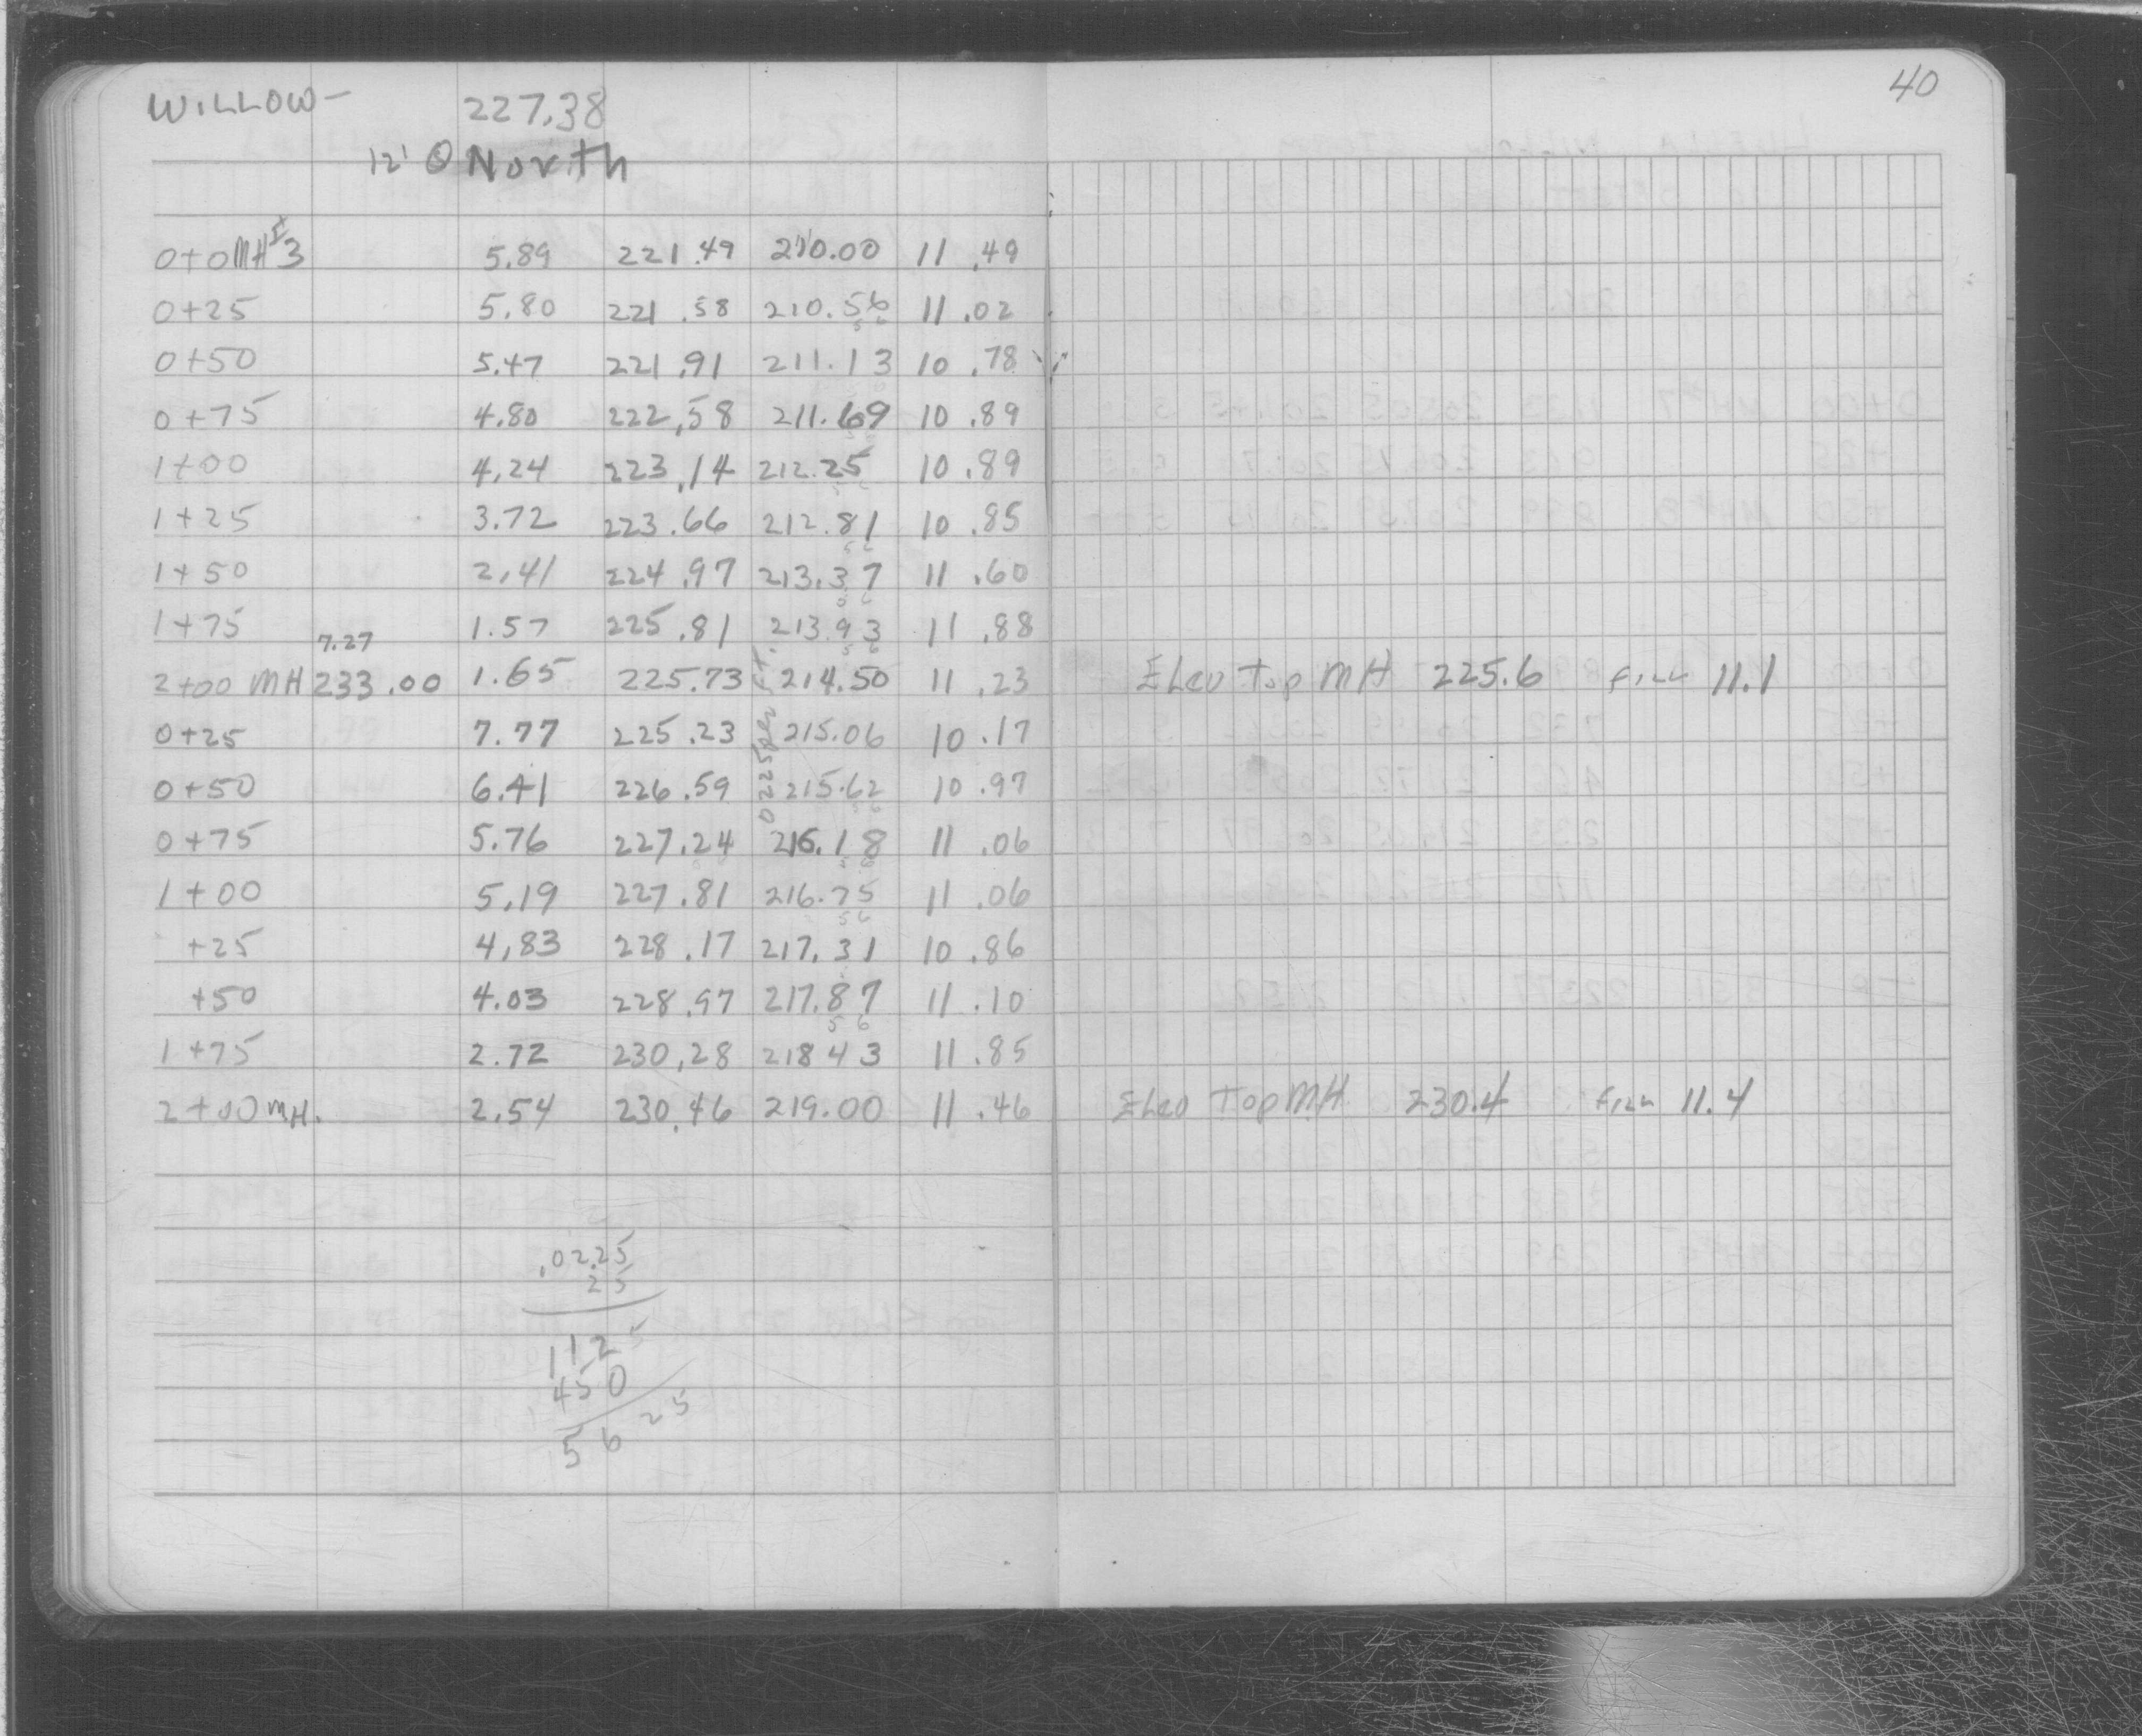 40
WILLOW- 227.38
12' @ North
0+0 MH 3 5.89 221.49 210.00 11.49
0+25 5.80 221.58 210.56 11.02
0+50 5.47 221.91 211.13 10.78
0+75 4.80 222.58 211.69 10.89
1+00 4.24 223.14 212.25 10.89
1+25 3.72 223.66 212.81 10.85
1+50 2.41 224.97 213.37 11.60
1+75 1.57 225.81 213.93 11.88
7.27
2+00 MH 233.00 1.65 225.73 214.50 11.23 Elev Top MH 225.6 Fill 11.1
0+25 7.77 225.23 215.06 10.17
0225 per ft.
0+50 6.41 226.59 215.62 10.97
0+75 5.76 227.24 216.18 11.06
1+00 5.19 227.81 216.75 11.06
+25 4.83 228.17 217.31 10.86
+50 4.03 228.97 217.87 11.10
1+75 2.72 230.28 218 43 11.85
2+00 MH. 2.54 230.46 219.00 11.46 Elev Top MH 230.4 Fill 11.4
.0225
25
1125
450
5625